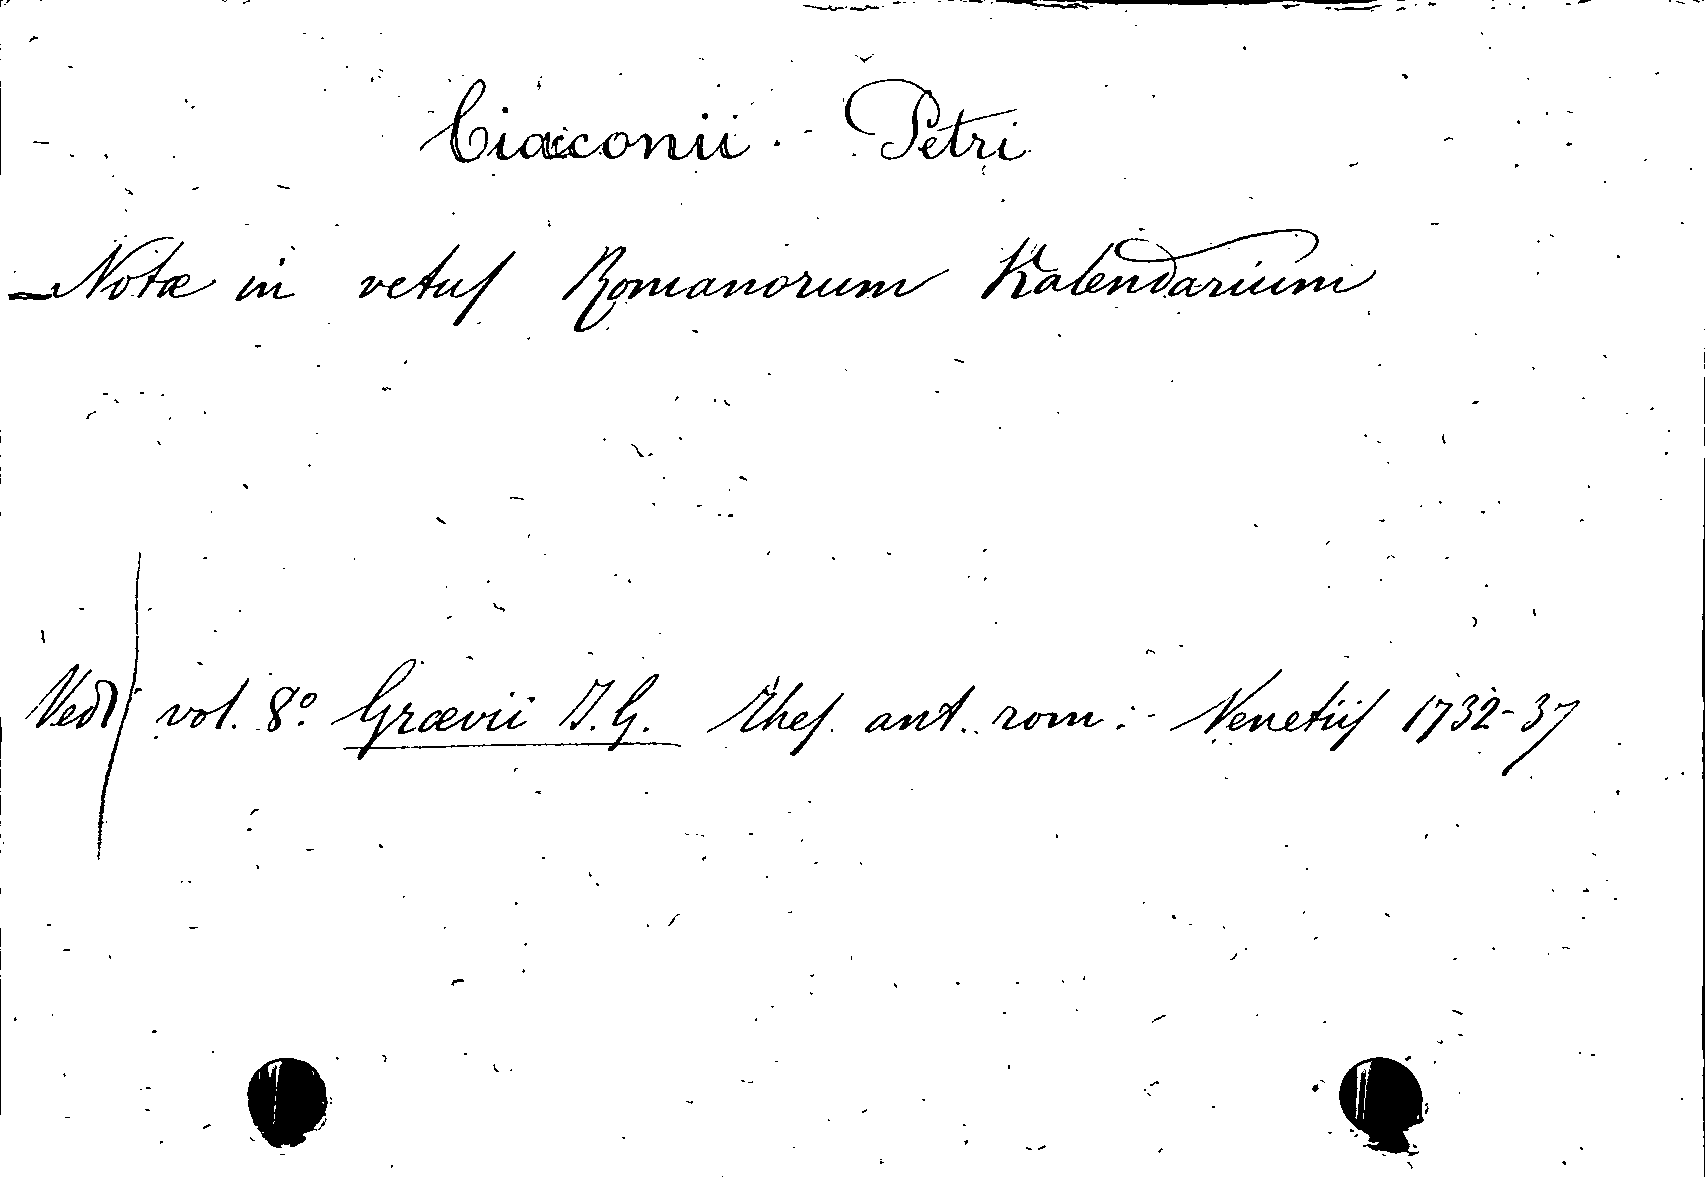 Ciacconii - Petri
Notæ in vetus Romanorum Kalendarium
Vedi vol. 8º Grævii I. G. Thes. ant. rom: - Venetiis 1732-37